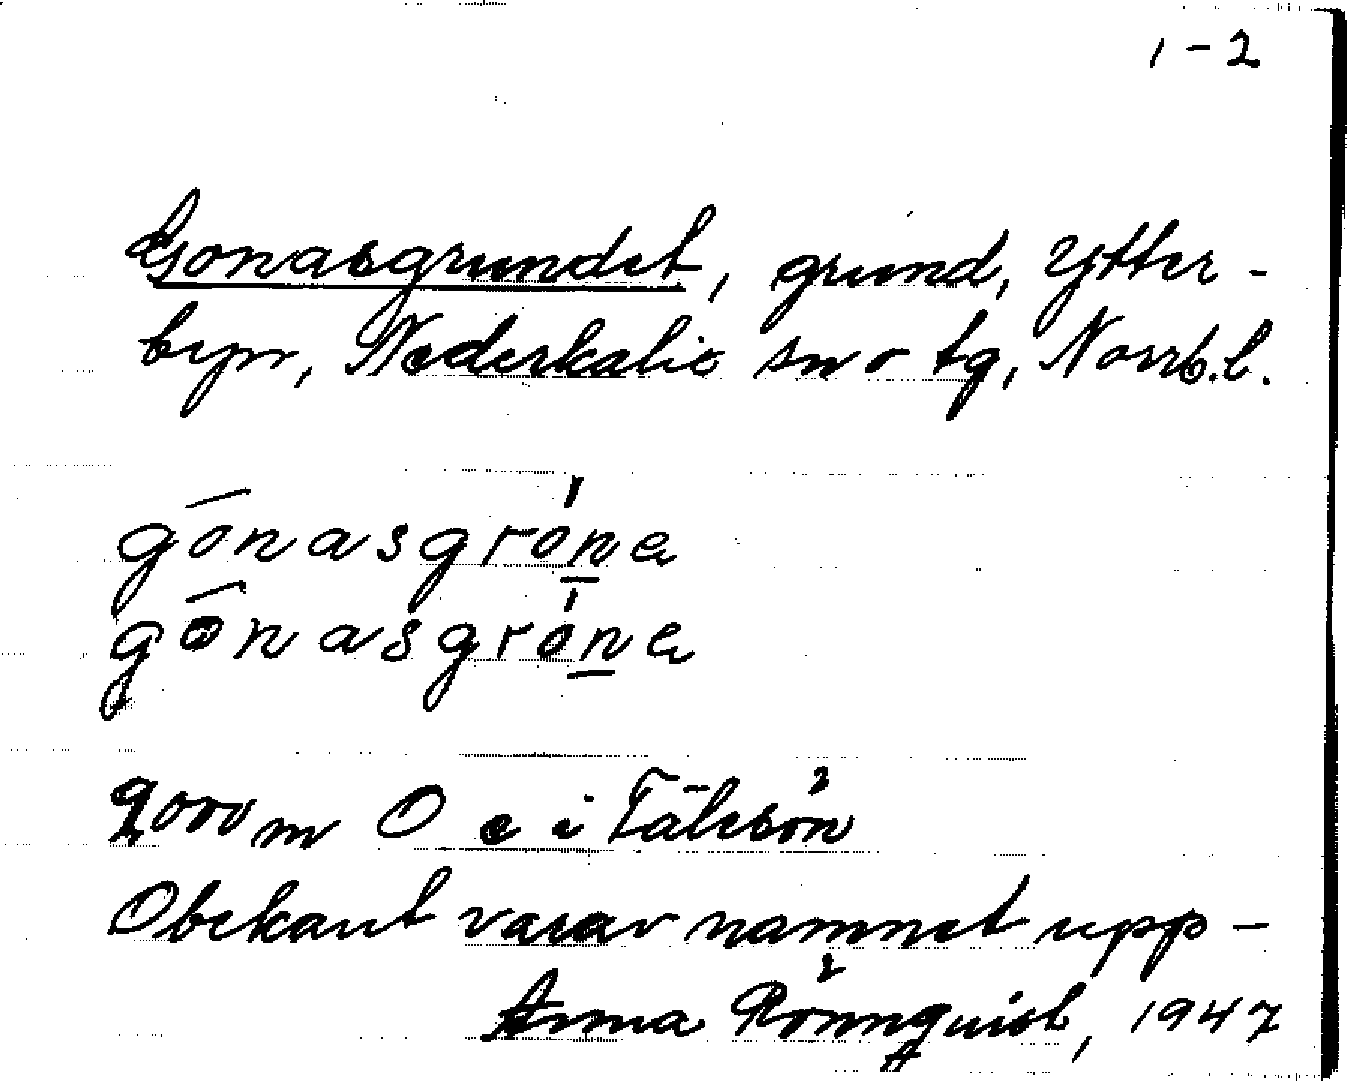 1-2
Gonasgrundet, grund, Ytter-
byn, Nederkalix sn o tg, Norrb.l.
gōnasgróne
gōnasgróne
2000 m O e i Tälesön
Obekant varav namnet upp-
Anna Rönnquist, 1947